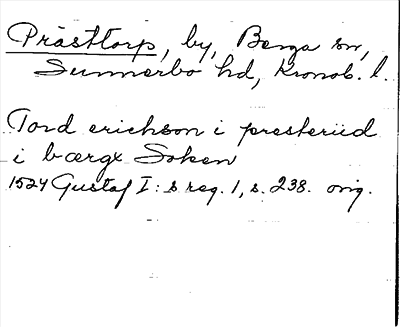 Prästtorp, by, Berga sn,
Sunnerbo hd, Kronob. l.
Tord erichson i presteriid
i bærgx Soken
1524 Gustaf I: s reg. 1, s. 238. orig.